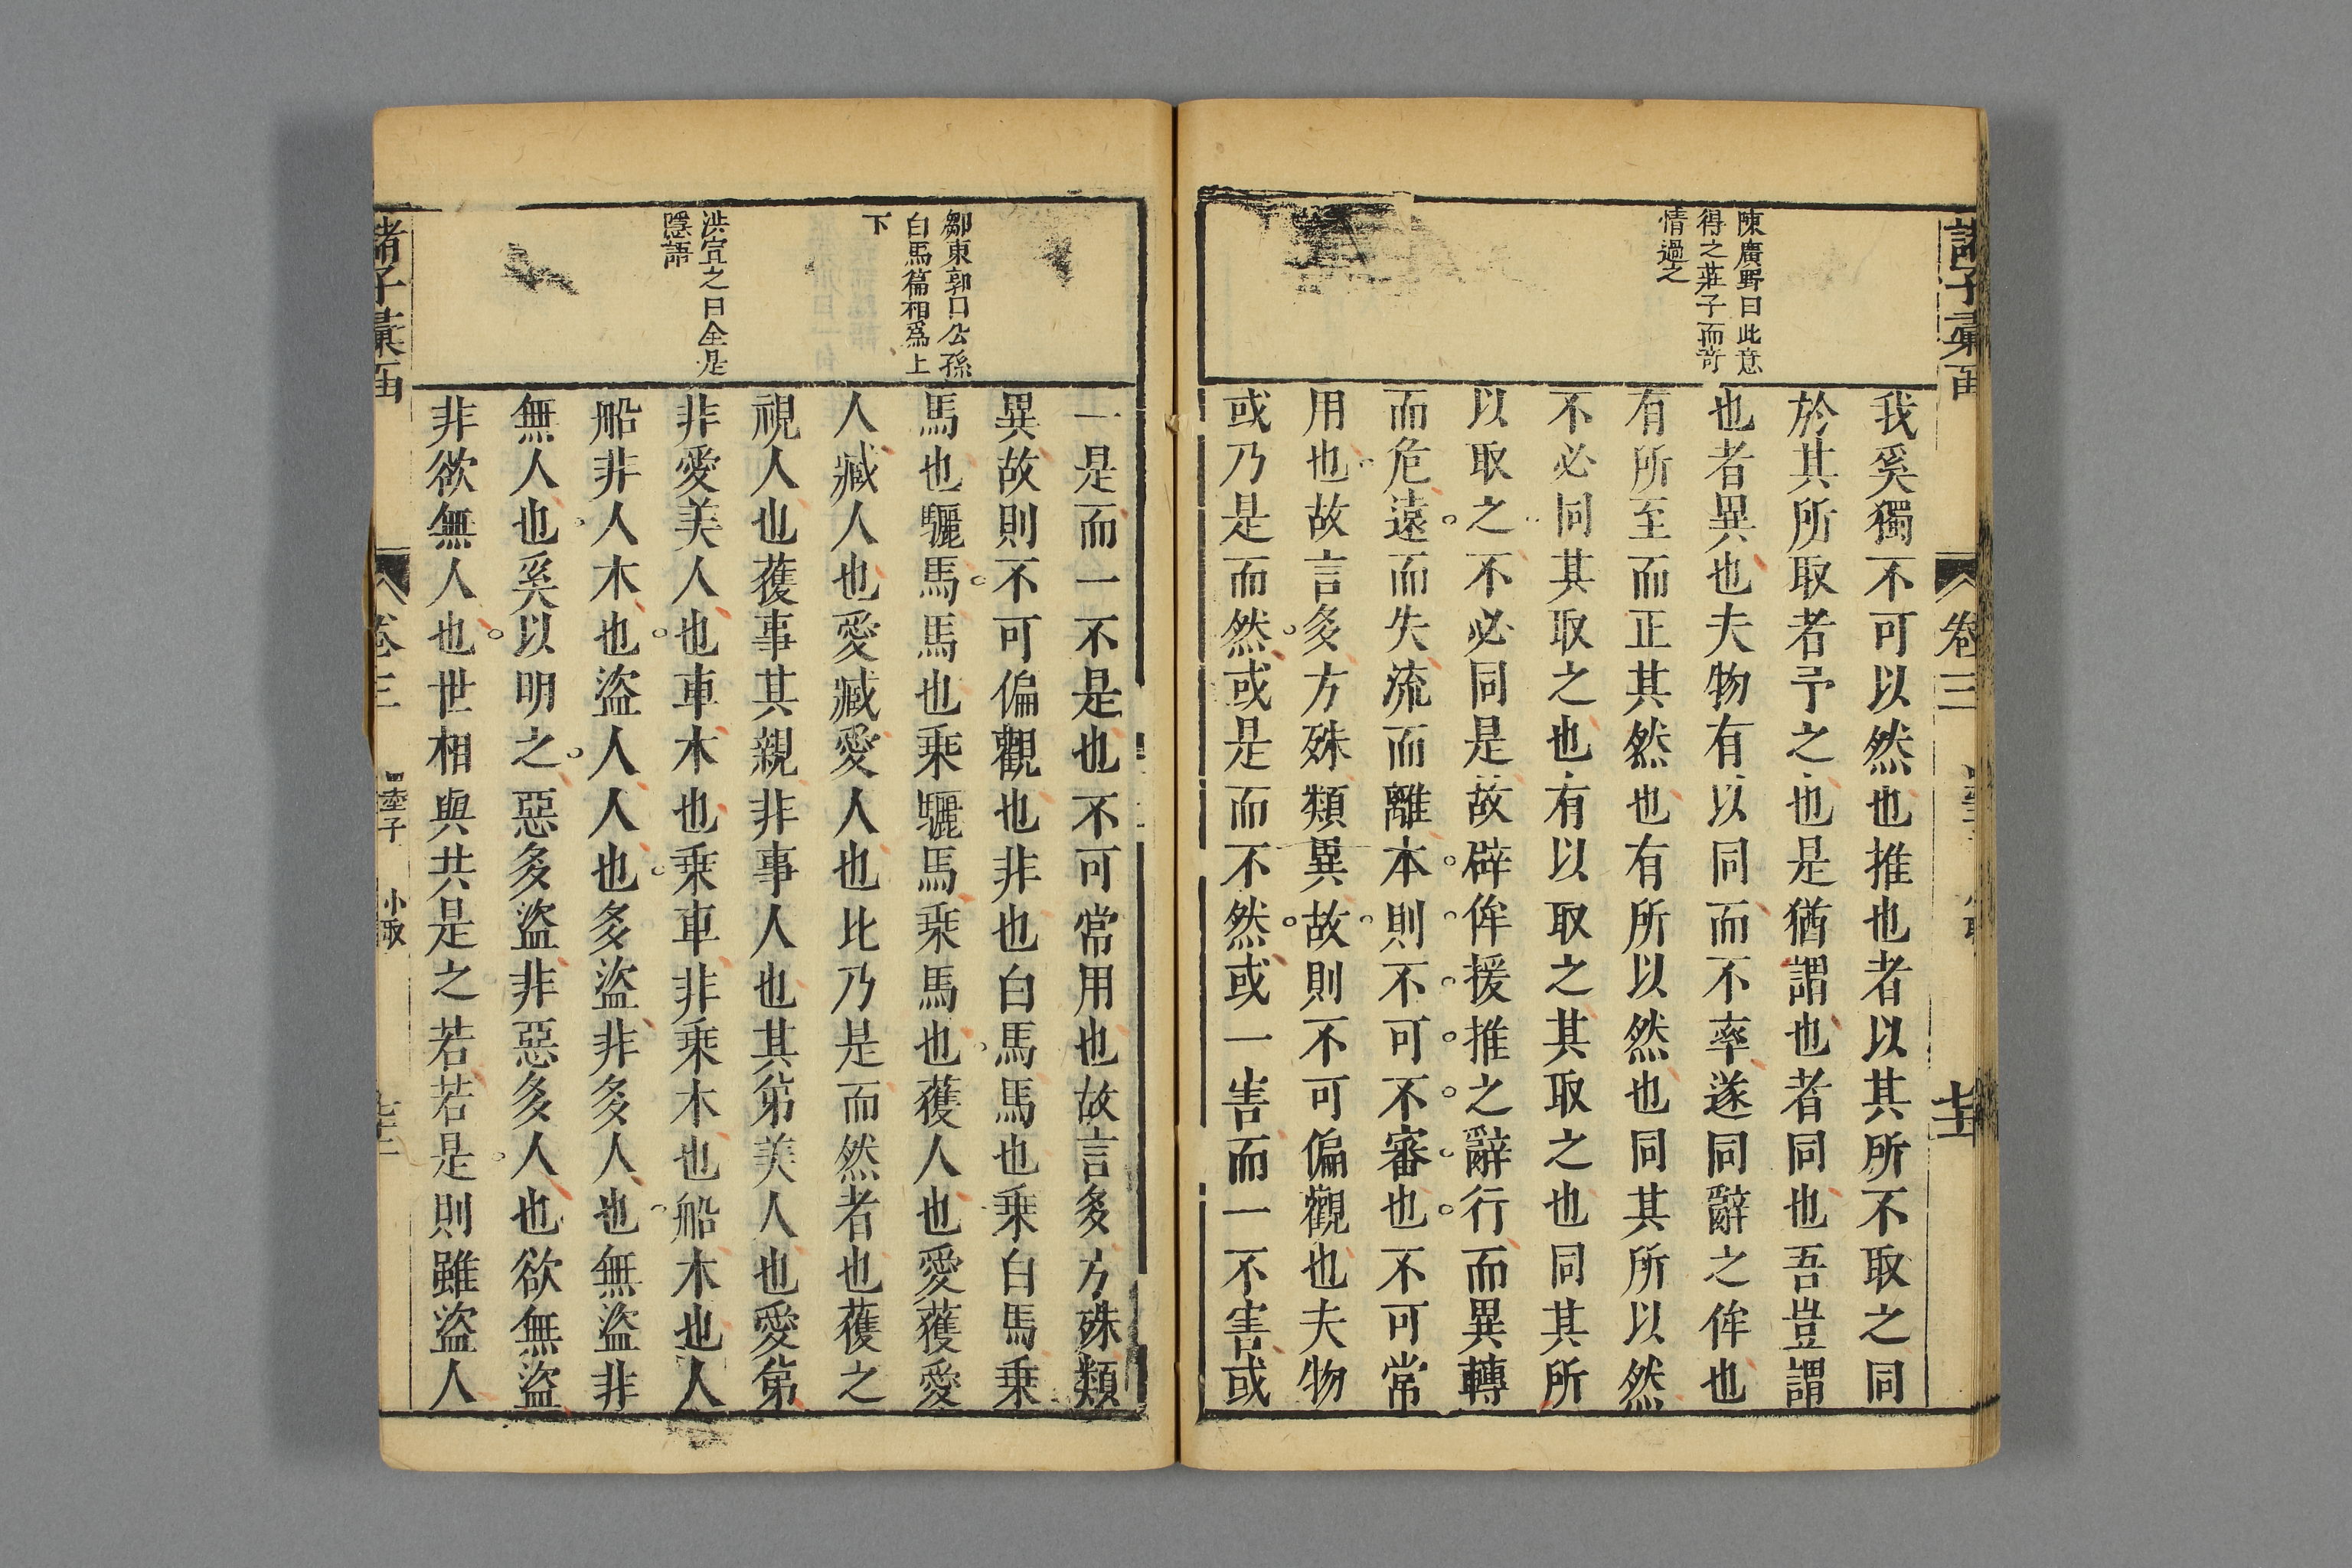 陳廣野曰此意
得之莊子而竒
情過之
我奚獨不可以然也推也者以其所不取之同
於其所取者予之也是猶謂也者同也吾豈謂
也者異也夫物有以同而不率遂同辭之侔也
有所至而正其然也有所以然也同其所以然
不必同其取之也有以取之其取之也同其所
以取之不必同是故辟侔援推之辭行而異轉
而危遠而失流而離本則不可不審也不可常
用也故言多方殊類異故則不可偏觀也夫物
或乃是而然或是而不然或一害而一不害或
鄒東郭曰公孫
白馬篇相爲上
下
洪宜之曰全是
隱語
一是而一不是也不可常用也故言多方殊類
異故則不可偏觀也非也白馬馬也乗白馬乗
馬也驪馬馬也乗驪馬乗馬也獲人也愛獲愛
人臧人也愛臧愛人也比乃是而然者也獲之
視人也獲事其親非事人也其弟美人也愛弟
非愛美人也車木也乗車非乗木也船木也人
船非人木也盜人人也多盜非多人也無盜非
無人也奚以明之惡多盜非惡多人也欲無盜
非欲無人也世相與共是之若若是則雖盜人
諸子彙函
卷三
小取